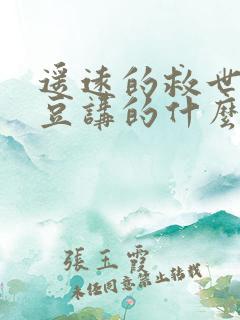 遥远的救世
豆講的什麼
張玉霞
未经同意禁止转载